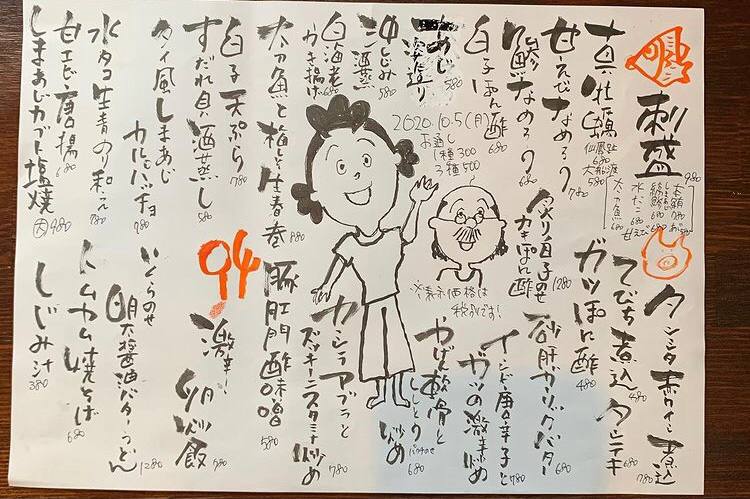 刺盛 980
太刀魚 680
水だこ 680
甘えび 580
真牡蠣
仙鳳趾 680
大船渡 580
甘えびなめろう 780
鯵なめろう 680
白子ぽん酢 680
〆あじ
一夜造り 580
沖しじみ
酒蒸 580
白海老
かき揚げ 680
太刀魚と梅しそ生春巻 880
白子天ぷら 780
すだれ貝酒蒸し 580
タイ風しまあじ
カルパッチョ 780
水タコ生青のり和え 780
甘エビ唐揚 680
しまあじカブト塩焼 980
2020.10.5(月)
お通し
1種300
3種500
※表示価格は
税別です!
タンシタ赤ワイン煮込 780
てびち煮込 480
タンテキ 680
ガツぽん酢 480
炙り白子のせ
カキぽん酢 1280
砂肝ガーリックバター 680
インゲン唐辛子と
ガツの激辛炒め 780
やげん軟骨と
ししとう炒め 680
カシラアブラと
ズッキーニスタミナ炒め 780
豚肛門酢味噌 580
94
激辛!卵炒飯 780
いくらのせ
明太醤油バターうどん 1280
トムヤム焼そば 680
しじみ汁 380